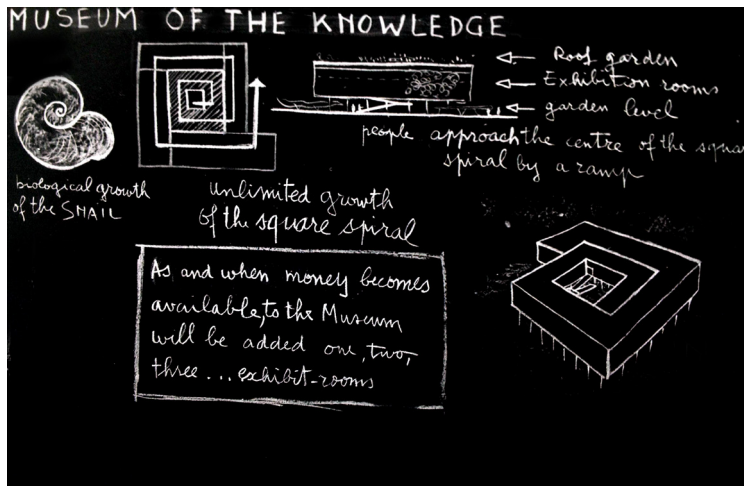 MUSEUM OF THE KNOWLEDGE
Roof garden
Exhibition rooms
garden level
people approach the centre of the square
spiral by a ramp
biological growth
of the SNAIL
unlimited growth
of the square spiral
As and when money becomes
available, to the Museum
will be added one, two,
three ... exhibit-rooms